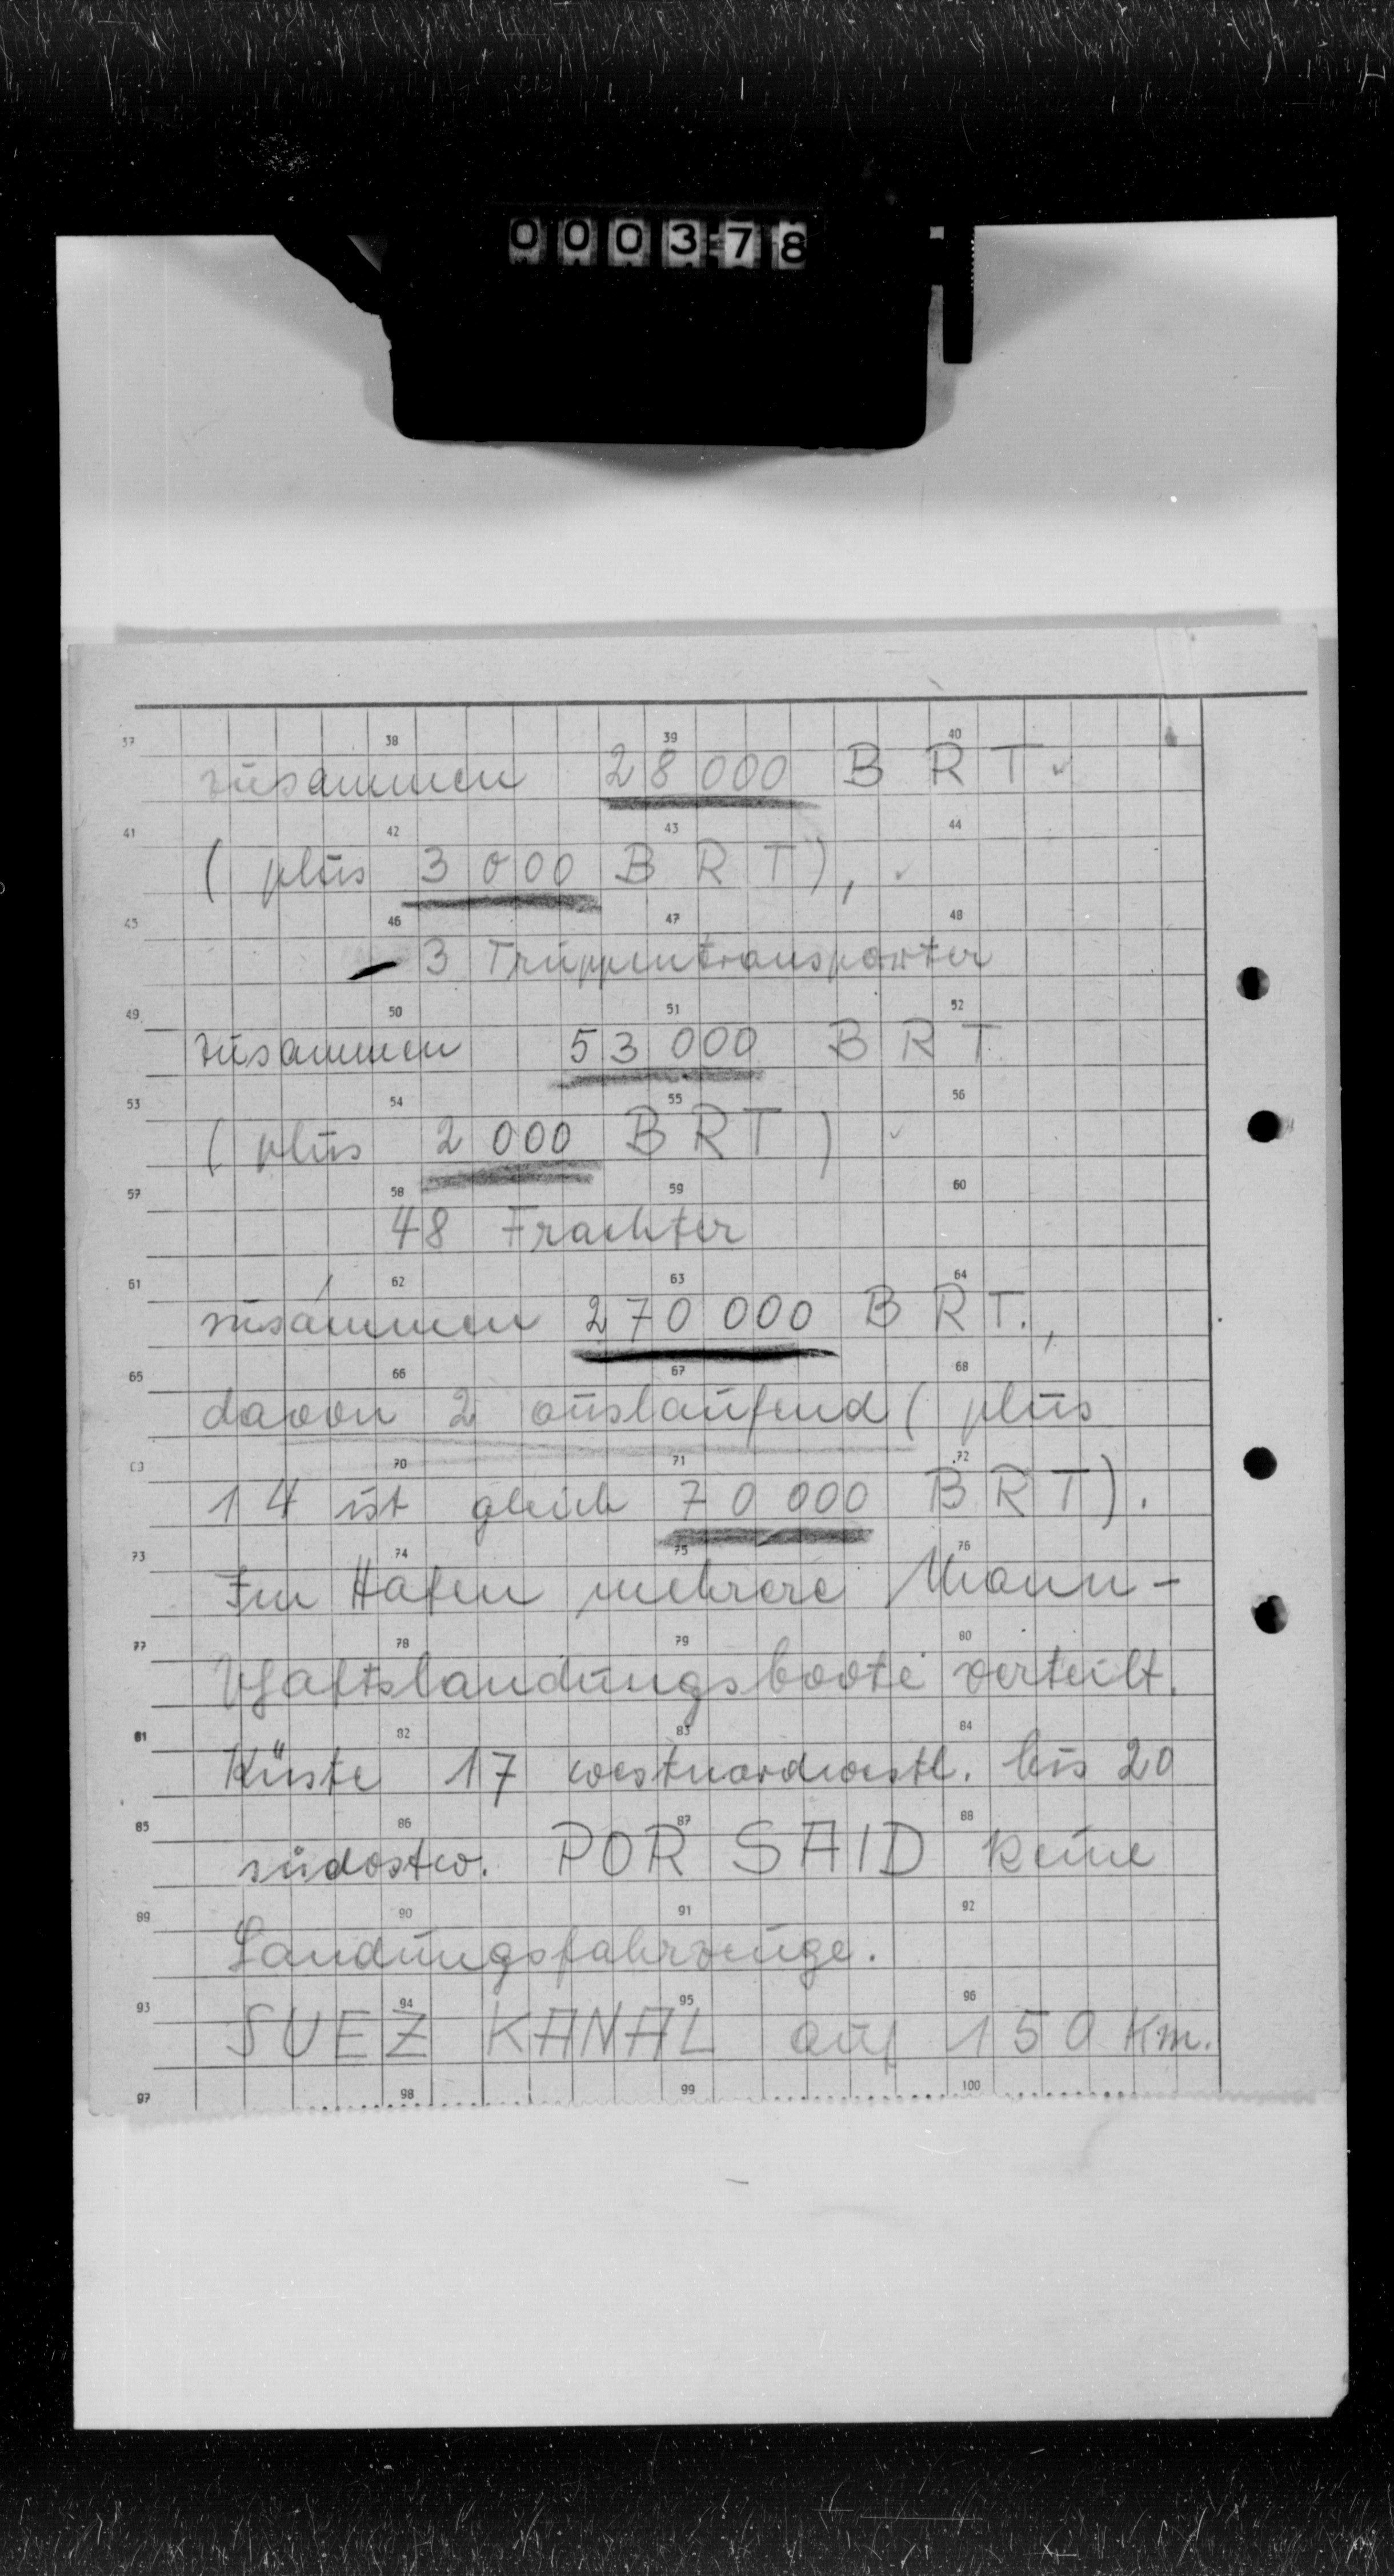 000378
37 38 39 40
zusammen 28 000 B R T
41 42 43 44
( plus 3 000 B R T ) ,
45 46 47 48
- 3 Truppentransporter
49 50 51 52
zusammen 53 000 B R T
53 54 55 56
( plus 2 000 B R T )
57 58 59 60
48 Frachter
61 62 63 64
zusammen 270 000 B R T. ,
65 66 67 68
davon 2 auslaufend ( plus
69 70 71 72
14 ist gleich 70 000 B R T ) .
73 74 75 76
Im Hafen mehrere Mann-
77 78 79 80
schaftslandungsboote verteilt.
81 82 83 84
Küste 17 westnordwestl. bis 20
85 86 87 88
südostw. POR SAID keine
89 90 91 92
Landungsfahrzeuge.
93 94 95 96
SUEZ KANAL auf 150 Km.
97 98 99 100